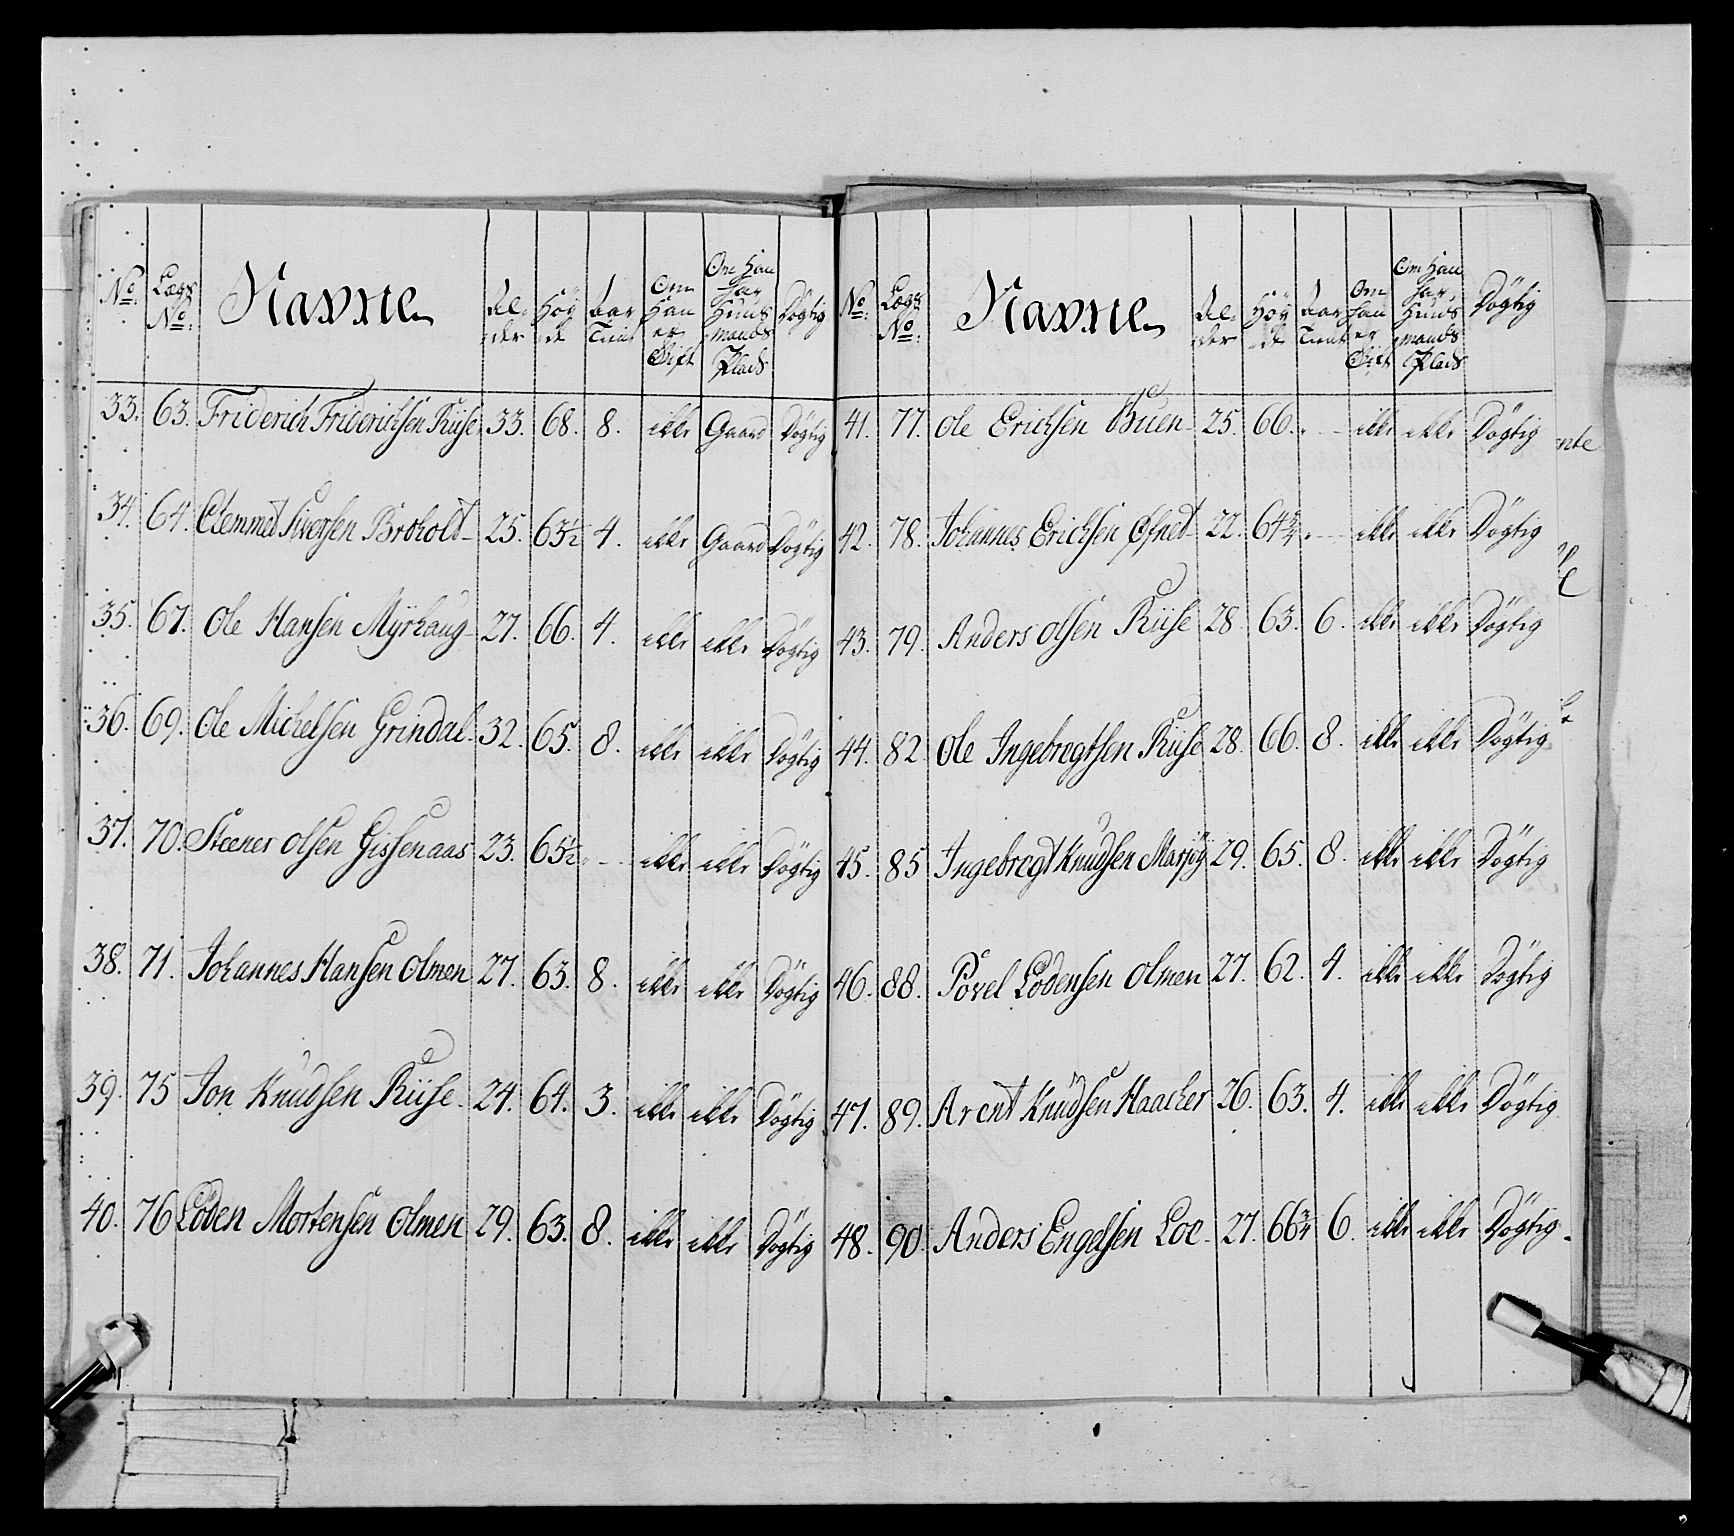 No: Lægs No: Navne Al- der Höy de Aar Tient Om Han er Gift Om Han har Huus mands Plads Dögtig
33. 63. Friderich Friderichsen Riise 33. 68. 8. ikke Gaard Dögtig
34. 64. Clemmet Siversen Broholt 25. 63½ 4. ikke Gaard Dögtig
35. 67. Ole Hansen Myrhaug 27. 66. 4. ikke ikke Dögtig
36. 69. Ole Michelsen Grindal 32. 65. 8. ikke ikke Dögtig
37. 70. Steener Olsen Gissenaas 23. 65½ - ikke ikke Dögtig
38. 71. Johannes Hansen Olmen 27. 63. 8. ikke ikke Dögtig
39. 75 Jon Knudsen Riise 24. 64. 3. ikke ikke Dögtig
40. 76 Loden Mortensen Olmen 29. 63. 8. ikke ikke Dögtig
No: Lægs No: Navne Al- der Höy de Aar Tient Om Han er Gift Om Han har Huus mands Plads Dögtig
41. 77. Ole Erichsen Buen 25. 66. - ikke ikke Dögtig
42. 78. Johannes Erichsen Øfned 22. 64¾ - ikke ikke Dögtig
43. 79. Anders Olsen Riise 28. 63. 6. ikke ikke Dögtig
44. 82. Ole Ingebregtsen Riise 28. 66. 8. ikke ikke Dögtig
45. 85 Ingebregt Knudsen Marjöy 29. 65. 8. ikke ikke Dögtig
46. 88. Povel Lodensen Olmen 27. 62. 4. ikke ikke Dögtig
47. 89. Arent Knudsen Haacher 26. 63. 4. ikke ikke Dögtig
48. 90. Anders Engelsen Loe 27. 66¾ 6. ikke ikke Dögtig